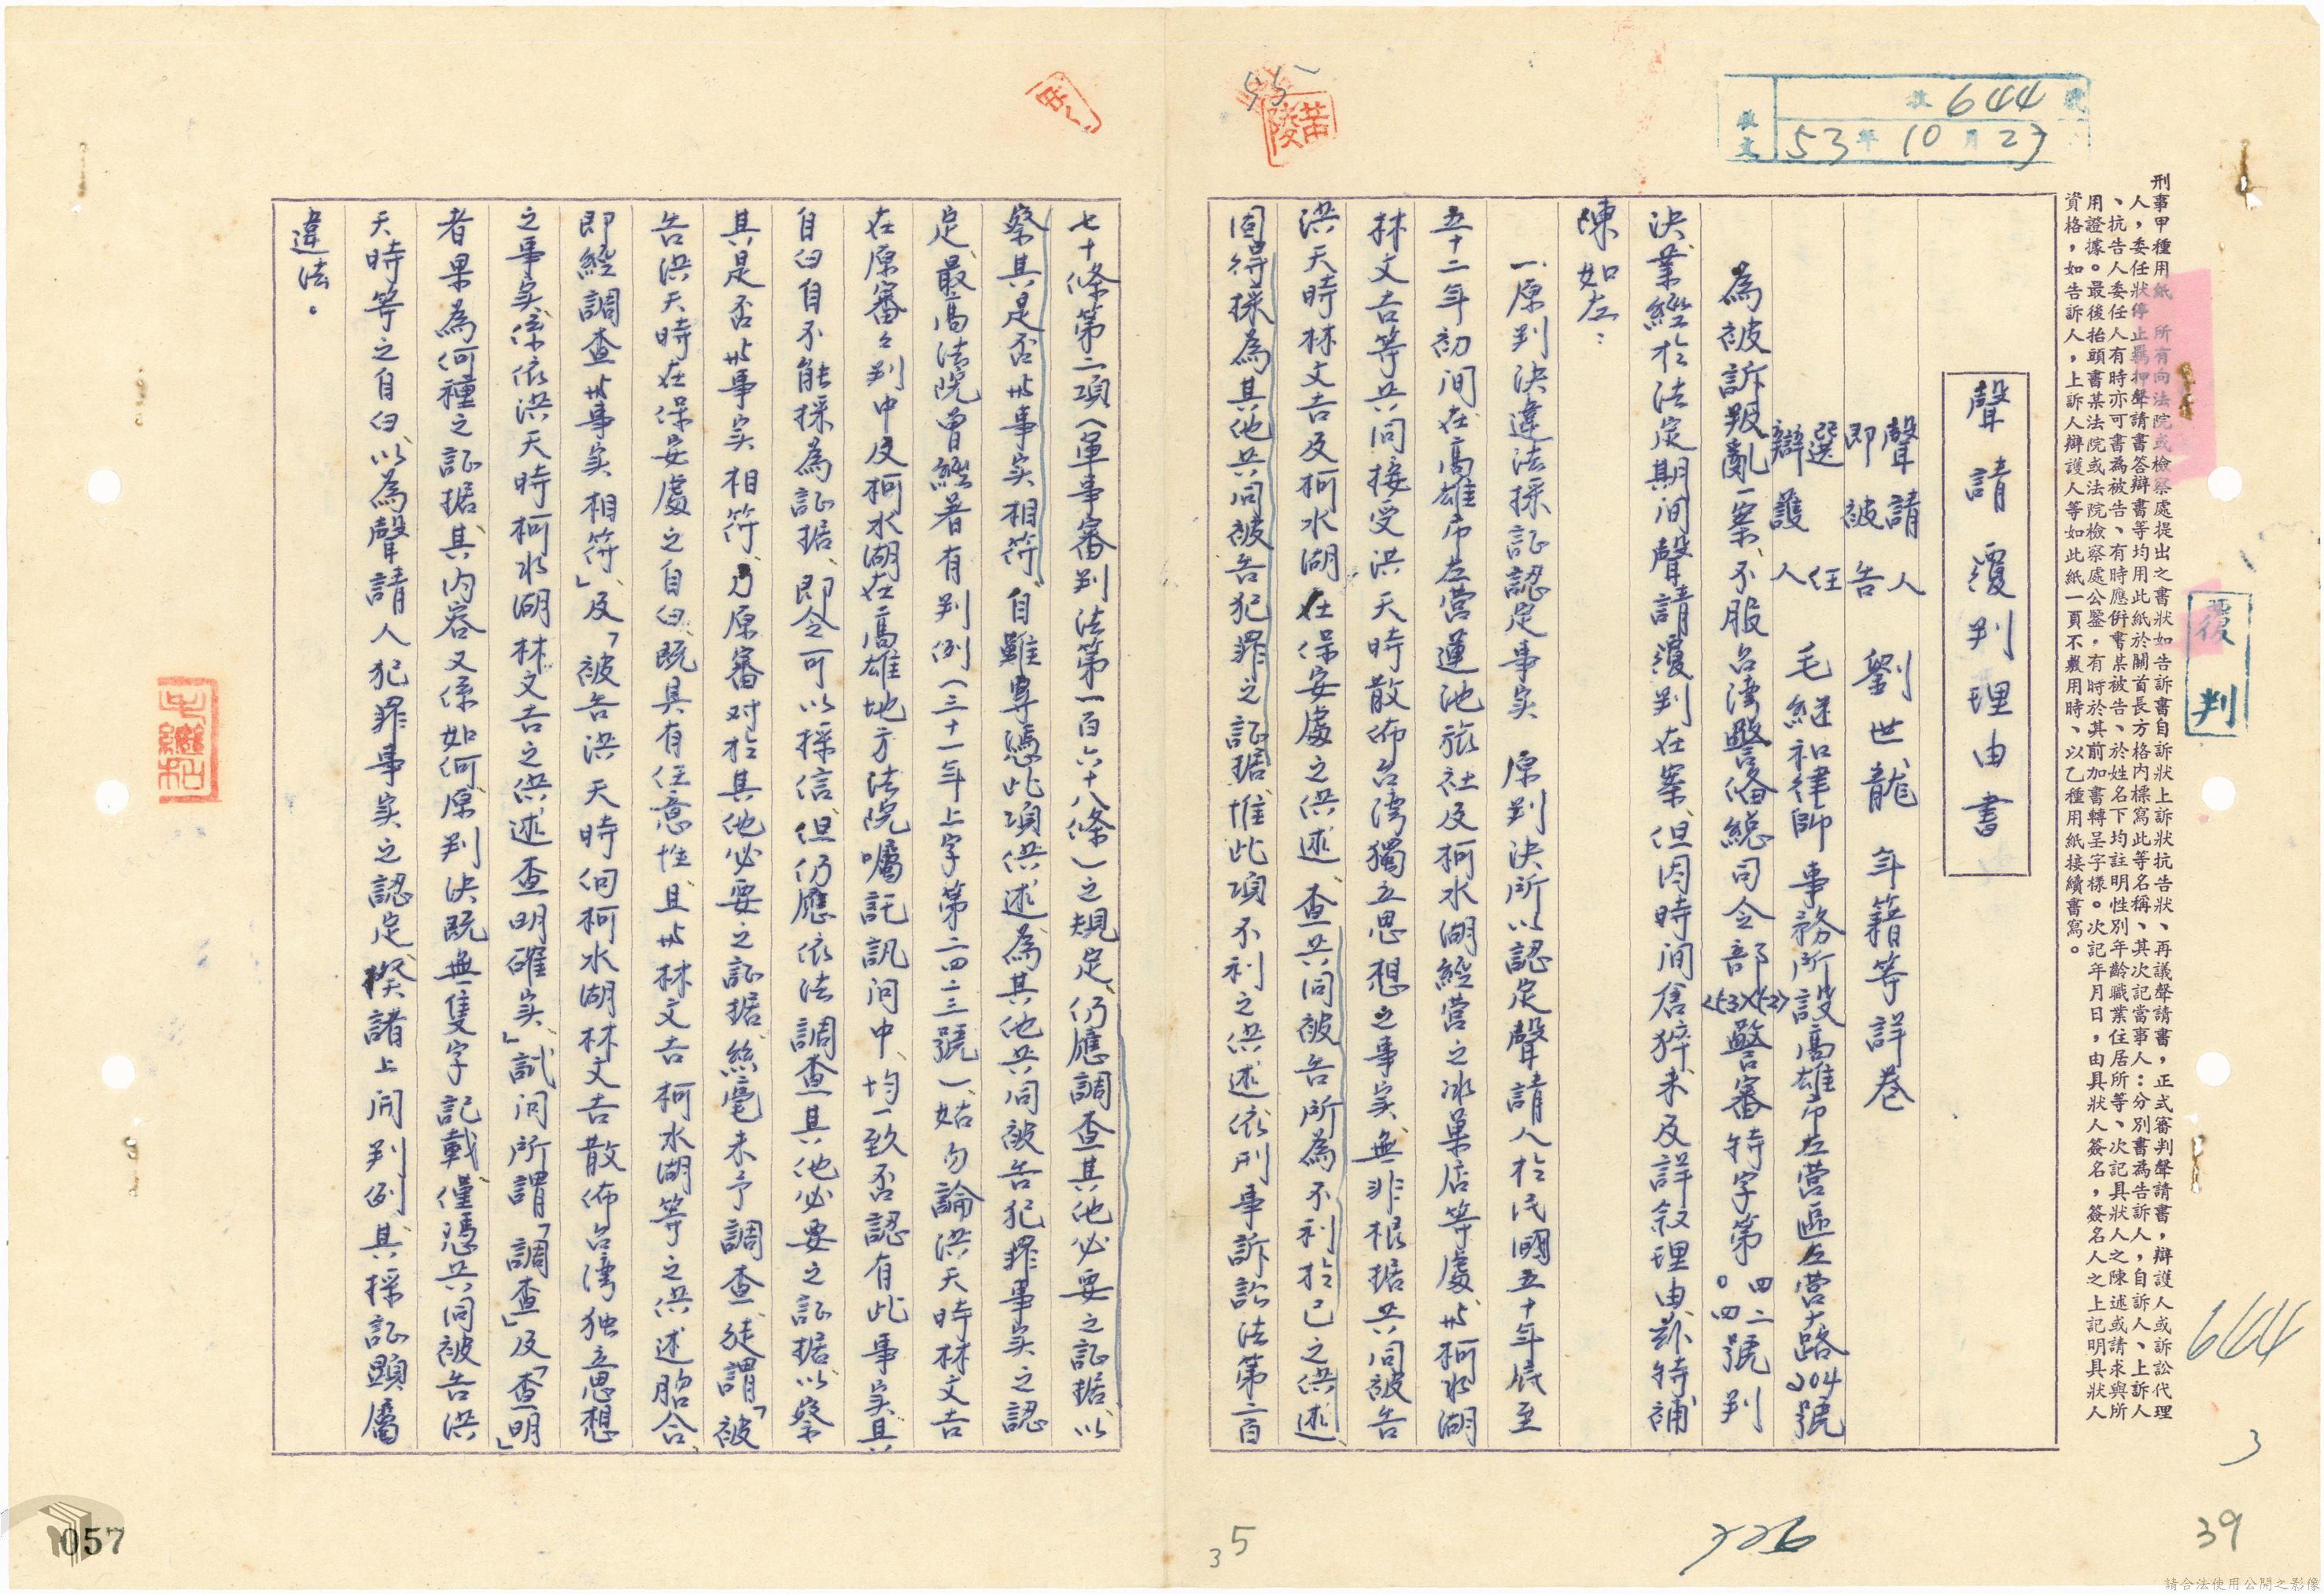 收 644 號
收文 53年10月23
刑事甲種用紙 所有向法院或檢察處提出之書狀如告訴書自訴狀上訴狀抗告狀、再議聲請書,正式審判聲請書,辯護人或訴訟代理
人,委任狀停止羈押聲請書答辯書等均用此紙於關首長方格內標寫此等名稱、其次記當事人:分別書為告訴人,自訴人、上訴人
、抗告人委任人有時亦可書為被告、有時應併書某被告、於姓名下均註明性別年齡職業住居所等、次記具狀人之陳述或請求與所
用證據。最後抬頭書某法院或法院檢察處公鑒,有時於其前加書轉呈字樣。次記年月日,由具狀人簽名,簽名人之上記明具狀人
資格,如告訴人,上訴人辯護人等如此紙一頁不敷用時、以乙種用紙接續書寫。
覆判
聲請覆判理由書
聲請人
即被告 劉世龍 年籍等詳卷
選任
辯護人 毛継和律師 事務所設高雄市左營區左營大路204號
為被訴叛亂一案不服台湾警偹總司令部(53)(52)警審特字第四二〇四號判
決業經於法定期间聲請覆判在案但因時间倉猝未及詳敘理由茲特補
陳如左:
一原判決違法採証認定事实 原判決所以認定聲請人於民國五十年底至
五十二年初间在高雄市左營蓮池旅社及柯水湖經营之冰菓店等處与柯水湖
林文吉等共同接受洪天時散佈台湾獨立思想之事实無非根据共同被告
洪天時林文吉及柯水湖在保安處之供述、查共同被告所為不利於己之供述、
固得採為其他共同被告犯罪之証据惟此項不利之供述依刑事訴訟法第二百
七十條第二項(軍事審判法第一百六十八條)之規定、仍應調查其他必要之証据、以
察其是否与事实相符、自難專憑此項供述為其他共同被告犯罪事实之認
定、最高法院曾經著有判例(三十一年上字第二四二三號)、姑勿論洪天時林文吉
在原審之判中及柯水湖在高雄地方法院囑託訊问中、均一致否認有此事实、其
自白自不能採為証据、即令可以採信、但仍應依法調查其他必要之証据以察
其是否与事实相符、乃原審对於其他必要之証据絲毫未予調查、徒謂「被
告洪天時在保安處之自白、既具有任意性、且与林文吉柯水湖等之供述脗合、
即經調查与事实相符」及「被告洪天時向柯水湖林文吉散佈台湾独立思想
之事实係依洪天時柯水湖林文吉之供述查明確实」試问所謂「調查」及「查明」
者果為何種之証据、其内容又係如何、原判決既無隻字記載、僅憑共同被告洪
天時等之自白、以為聲請人犯罪事实之認定、揆諸上開判例、其採証顯屬
違法。
毛繼和
644
3
39
226
35
057
請合法使用公開之影像